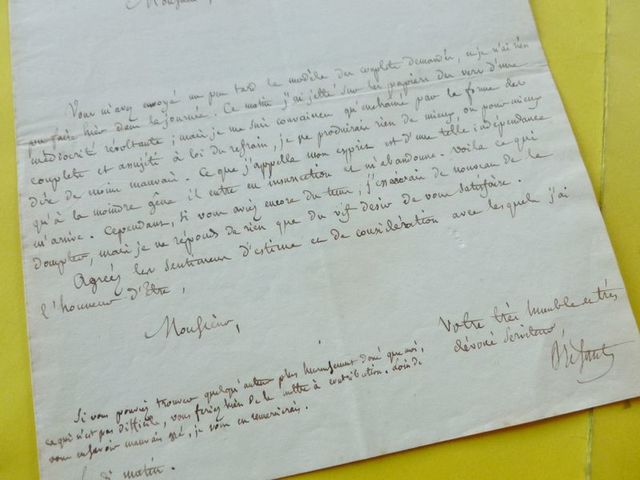 Monsieur,
Vous m'avez envoyé un peu tard le modèle des couplets demandés, et je n'ai rien
pu faire hier dans la journée. Ce matin j'ai jetté sur les papiers des vers d'une
médiocrité révoltante; mais je me suis convaincu qu'enchainé par la forme des
couplets et assujetti à la loi du refrain, je ne produirais rien de mieux, ou pour mieux
dire de moins mauvais. Ce que j'appelle mon esprit est d'une telle indépendance
qu'à la moindre gêne il entre en insurrection et m'abandonne. Voila ce qui
m'arrive. Cependant, si vous aviez encore du tems, j'essaierai de nouveau de le
dompter, mais je ne réponds de rien que du vif desir de vous satisfaire.
Agréez les sentimens d'estime et de considération avec lesquels j'ai
l'honneur d'être,
Monsieur,
Votre très humble et très
dévoué Serviteur
Si vous pouvez trouver quelqu'auteur plus heureusement doué que moi,
ce qui n'est pas difficile, vous feriez bien de le mettre à contribution. loin de
vous en savoir mauvais gré, je vous en remercierais.
matin.